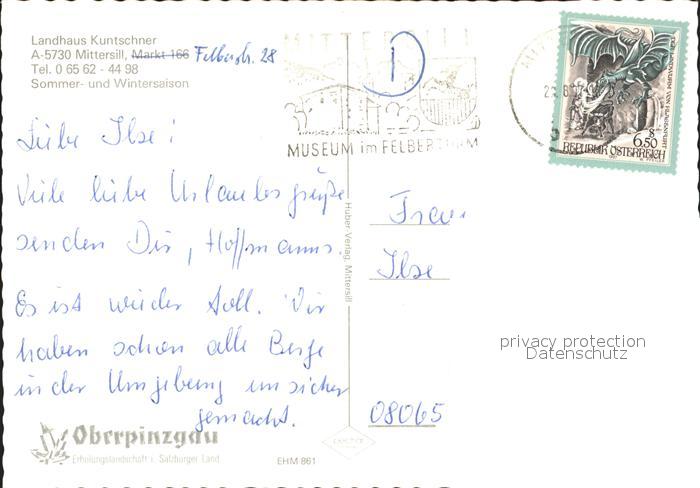 Landhaus Kuntschner
A-5730 Mittersill, Markt 166 Felberstr. 28
Tel. 0 65 62 - 44 98
Sommer- und Wintersaison
MITTERSILL
MUSEUM im FELBERTURM
D
6.50
REPUBLIK ÖSTERREICH
Liebe Ilse!
Viele liebe Urlaubsgrüße
senden Dir, Hoffmanns.
Es ist wieder toll. Wir
haben schon alle Berge
in der Umgebung unsicher
gemacht.
Huber-Verlag, Mittersill
Frau
Ilse
08065
privacy protection
Datenschutz
Oberpinzgau
Erholungslandschaft i. Salzburger Land
EHM 861